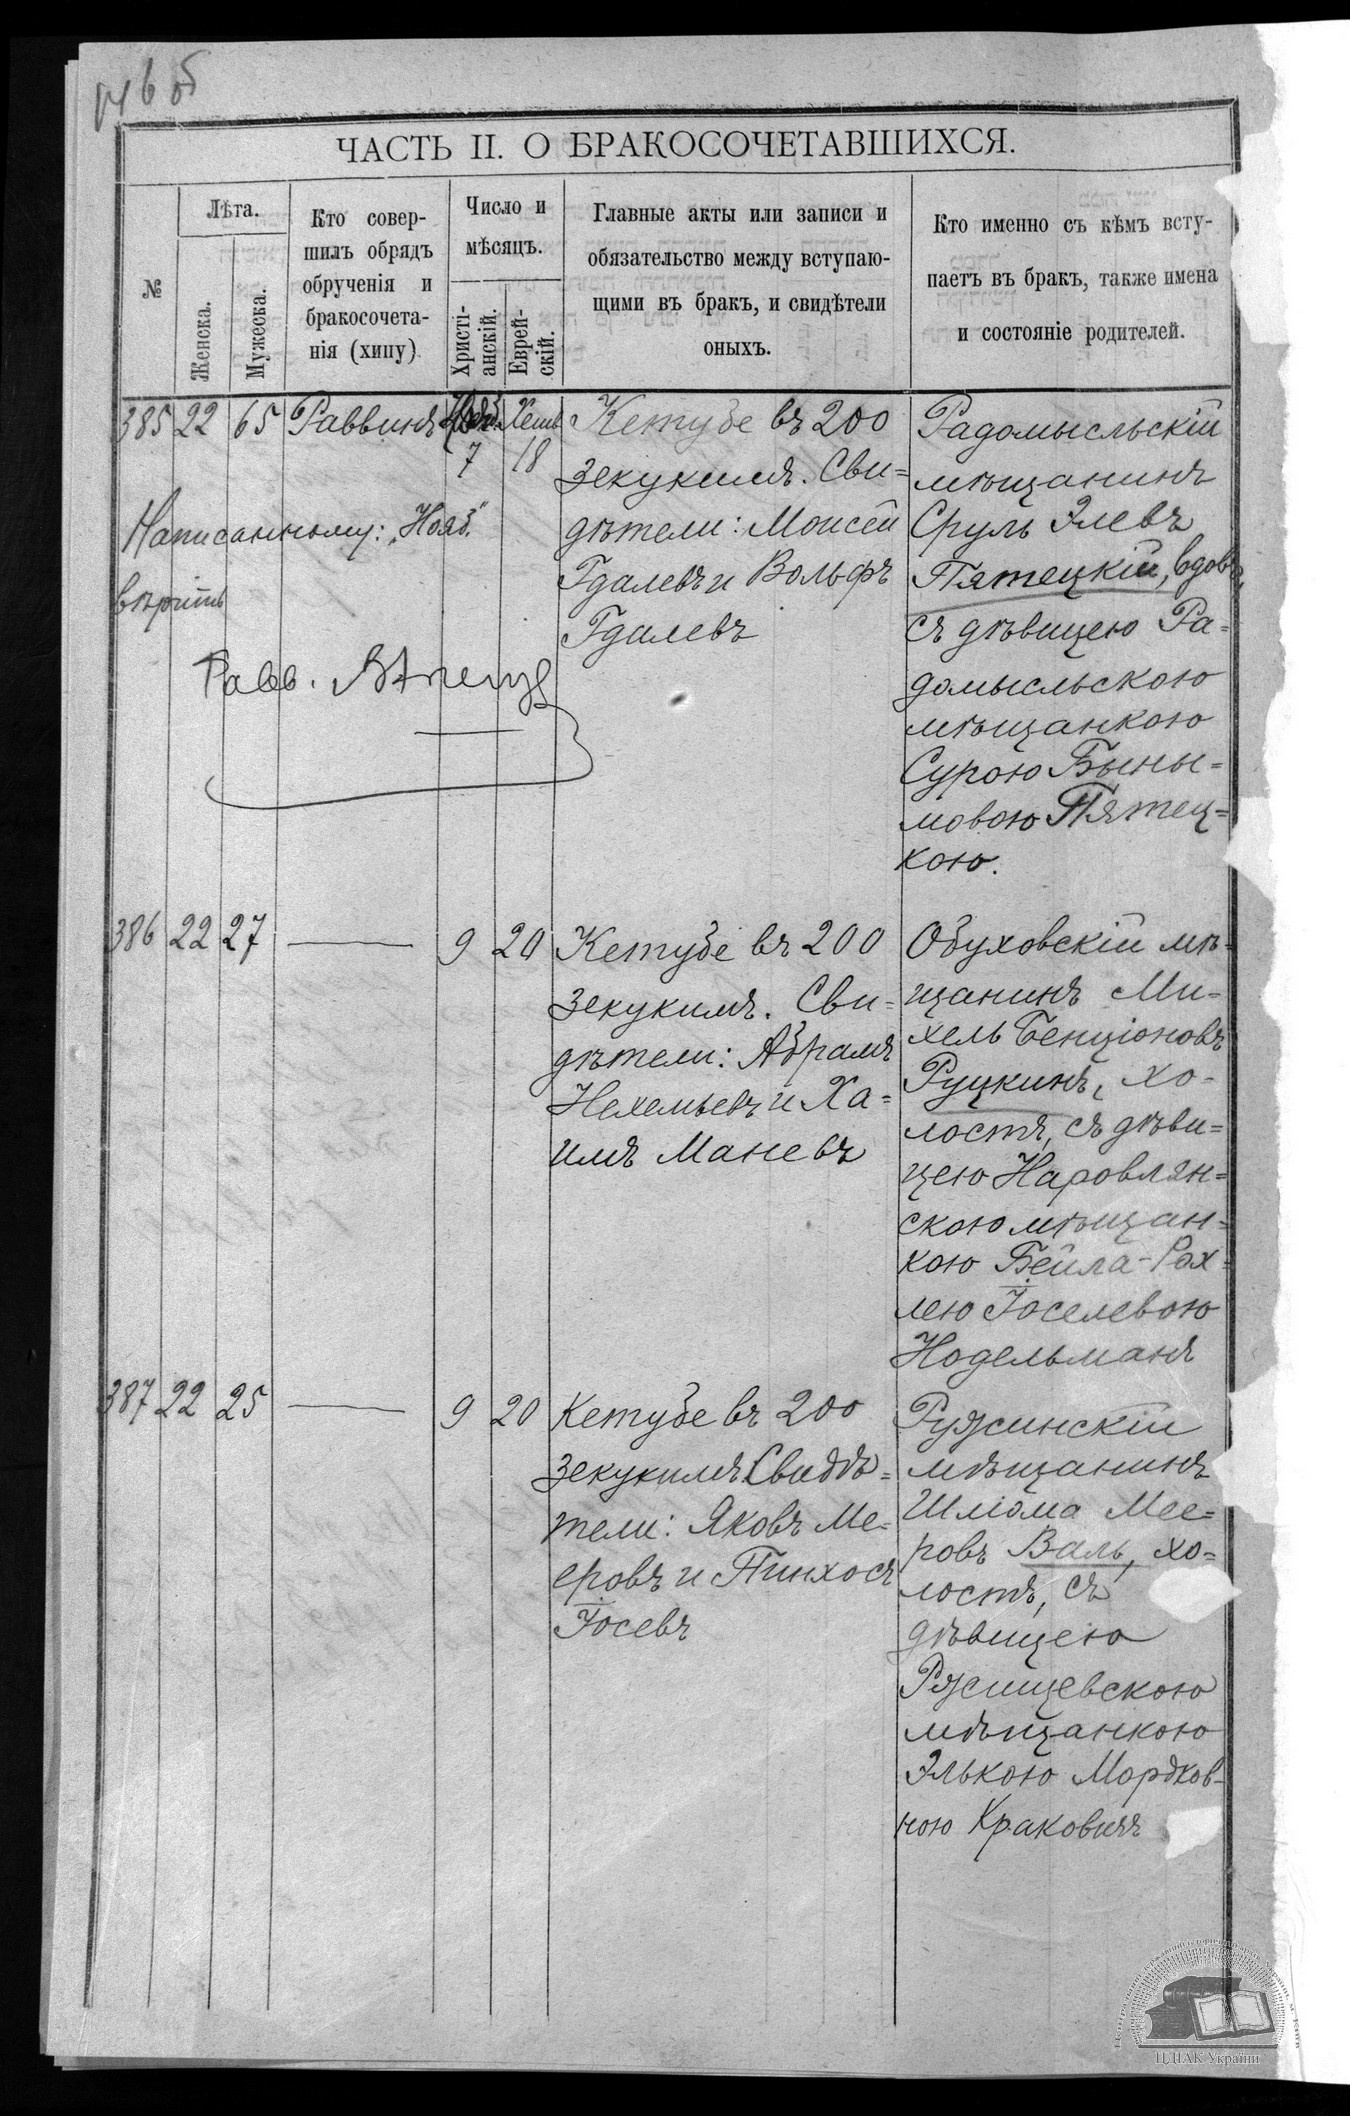 ЧАСТЬ II. О БРАКОСОЧЕТАВШИХСЯ.
№
Лѣта.
Женска.
Мужеска.
Кто совер-
шилъ обрядъ
обрученія и
бракосочета-
нія (хипу)
Число и
мѣсяцъ.
Христі-
анскій.
Еврей-
скій.
Главные акты или записи и
обязательство между вступаю-
щими въ бракъ, и свидѣтели
оныхъ.
Кто именно съ кѣмъ всту-
паетъ въ бракъ, также имена
и состояніе родителей.
385 22 65 Раввинъ Нояб. 7 Хешв 18
Кетубе въ 200
зекукимъ. Сви=
дѣтели: Моисей
Гдалевъ и Вольфъ
Гдалевъ
Радомысльскій
мѣщанинъ
Сруль Элевъ
Пятецкій, вдовъ,
съ дѣвицею Ра-
домысльскою
мѣщанкою
Сурою Быны=
мовою Пятец=
кою.
Написанному: „Нояб."
вѣрить
Равв.
386 22 27 — 9 20
Кетубе въ 200
зекукимъ. Сви=
дѣтели: Абрамъ
Нехемьевъ и Ха=
имъ Маневъ
Обуховскій мѣ-
щанинъ Ми-
хель Бенціоновъ
Руцкинъ, хо-
лостъ, съ дѣви=
цею Наровлян=
скою мѣщан=
кою Бейла-Рах=
лею Іоселевою
Нодельманъ
387 22 25 — 9 20
Кетубе въ 200
зекукимъ Свидѣ=
тели: Яковъ Ме-
еровъ и Пинхосъ
Іосевъ
Ружинскій
мѣщанинъ
Шліома Мее=
ровъ Валь, хо=
лостъ, съ
дѣвицею
Ржищевскою
мѣщанкою
Элькою Мордков-
ною Краковичъ
ЦДІАК України